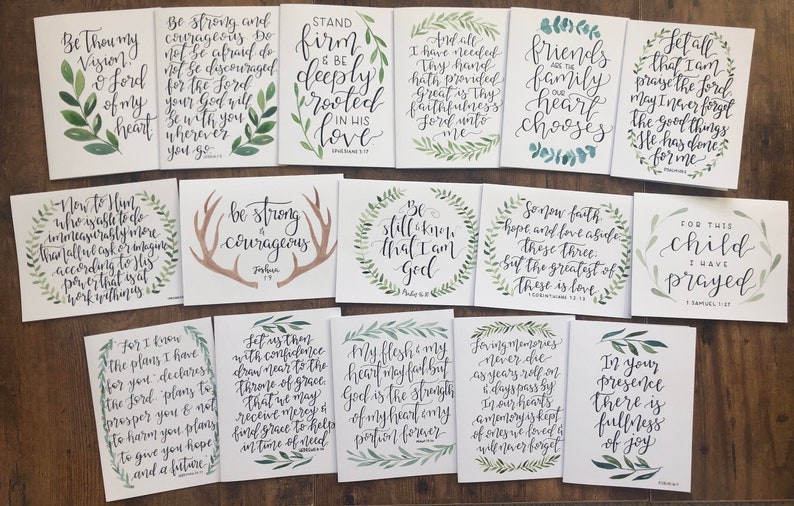 Be Thou my
Vision O Lord
of my
heart
Be strong and
courageous. Do
not be afraid do
not be discouraged
for the Lord
your God will
be with you
wherever
you go.
STAND
firm
& BE
deeply
rooted
IN HIS
love
EPHESIANS 3:17
And all
I have needed
Thy hand
hath provided
Great is Thy
faithfulness
Lord unto
me
friends
ARE THE
family
OUR
heart
chooses
Let all
that I am
praise the Lord
may I never forget
the good things
He has done
for me
Now to Him
who is able to do
immeasurably more
than all we ask or imagine
according to His
power that is at
work within us.
be strong
&
courageous
Joshua
1:9
Be
still & know
that I am
God
Psalm 46:10
So now faith,
hope, and love abide,
these three;
but the greatest of
these is love.
1 CORINTHIANS 13:13
FOR THIS
child
I HAVE
prayed
1 SAMUEL 1:27
"For I know
the plans I have
for you," declares
the Lord, "plans to
prosper you & not
to harm you, plans
to give you hope
and a future."
Let us then
with confidence
draw near to the
throne of grace,
that we may
receive mercy &
find grace to help
in time of need.
HEBREWS 4:16
My flesh & my
heart may fail but
God is the strength
of my heart & my
portion forever.
Loving memories
never die
as years roll on
& days pass by
In our hearts
a memory is kept
of ones we loved &
will never forget
In your
presence
there is
fullness
of joy